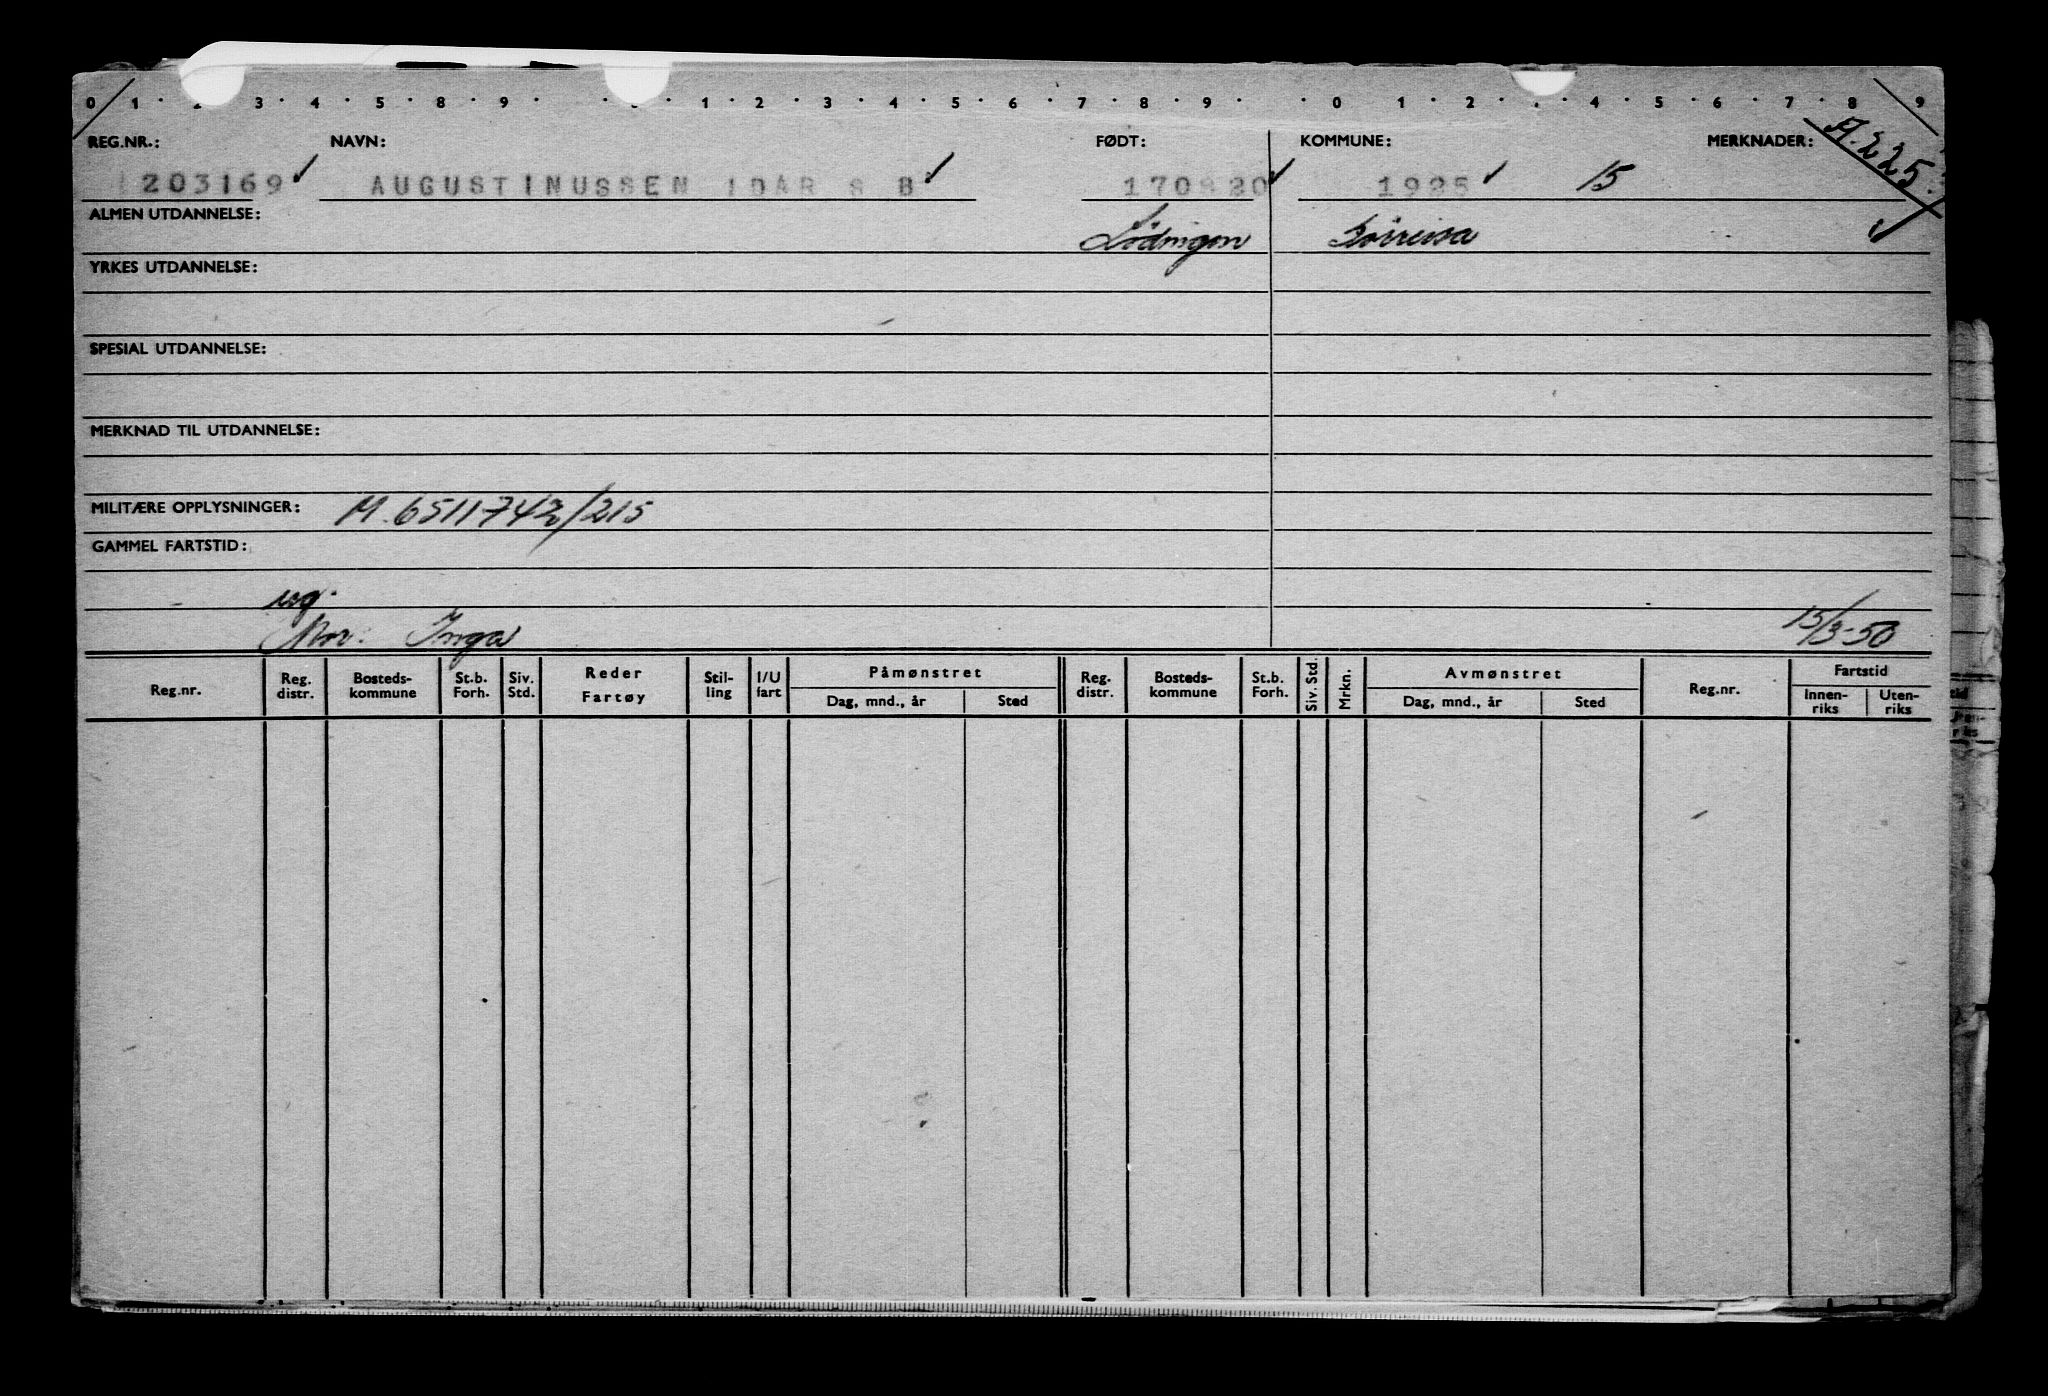 0 1 2 3 4 5 8 9 1 2 3 4 5 6 7 8 9 0 1 2 4 5 6 7 8 9
REG.NR.: NAVN: FØDT: KOMMUNE: MERKNADER: A.225.
203169 AUGUSTINUSSEN IDAR S B 170920 1925 15
ALMEN UTDANNELSE: Lödingen
YRKES UTDANNELSE:
SPESIAL UTDANNELSE:
MERKNAD TIL UTDANNELSE:
MILITÆRE OPPLYSNINGER: M. 6511742/215
GAMMEL FARTSTID:
ug.
Mor: Inga 15/3-50
Reg.nr. Reg. distr. Bosteds-kommune St.b. Forh. Siv. Std. Reder Fartøy Stil-ling I/U fart Påmønstret Dag, mnd., år Sted Reg. distr. Bosteds-kommune St.b. Forh. Siv. Std. Mrkn. Avmønstret Dag, mnd., år Sted Reg.nr. Fartstid Innen-riks Uten-riks